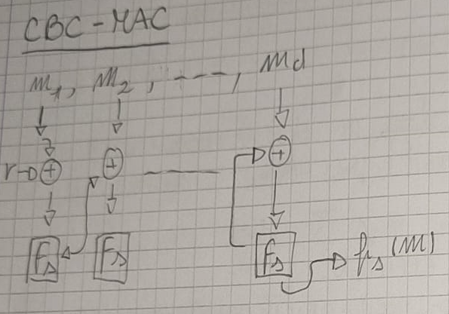 CBC-MAC
m₁, m₂, ---, md
r ⊕ ⊕ ⊕
Fs Fs Fs fs(m)